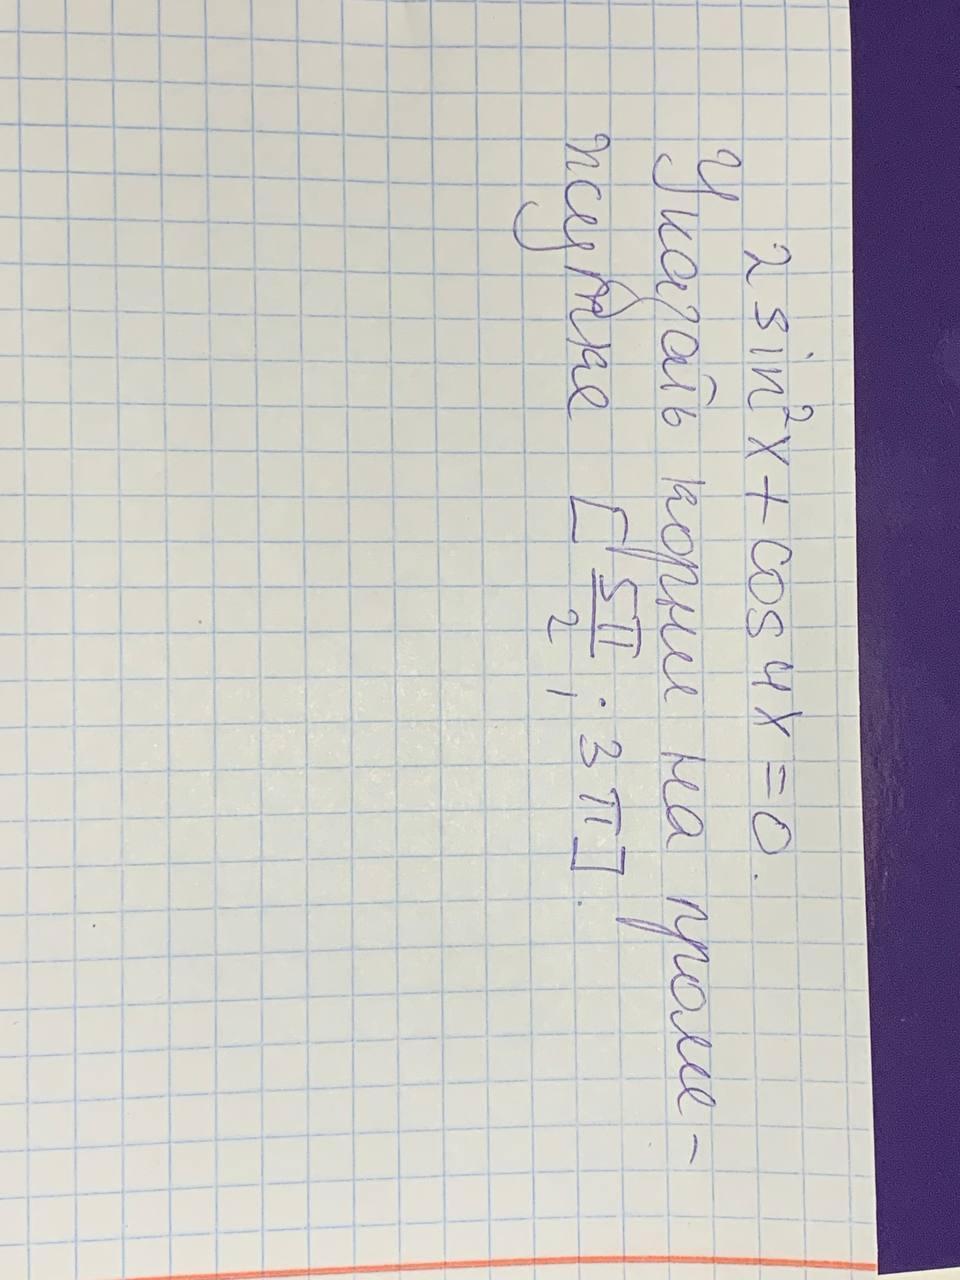 2 sin²x + cos 4x = 0.
Указать корни на проме-
жутке [5π/2; 3π].